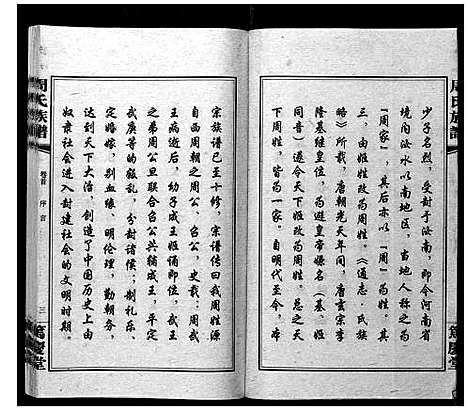 周氏族譜
少子名烈，受封于汝南，即今河南省
境内汝水以南地区，当地人称之为
「周家」，其后亦以「周」为姓。其
三，由姬姓改为周姓。《通志·氏族
略》所载，唐朝先天年间，唐玄宗李
隆基继皇位，为避皇帝嫌名（基、姬
同音）遂令天下姬姓改为周姓。总之天
下周姓，皆为一家。自明代至今，本
篤慶堂
宗族谱已至十修，宗谱传曰我周姓源
自西周朝之周公、召公，史载：周武
王病逝后，幼子成王姬诵即位，武王
之弟周公旦联合召公共辅成王，平定
武庚等的叛乱，分封诸侯；制礼乐、
定婚嫁，别血缘、明伦理，勤朝务，
达到天下大治，创造了中国历史上由
奴隶社会进入封建社会的文明时期。
周氏族譜
卷首 序言
三
篤慶堂